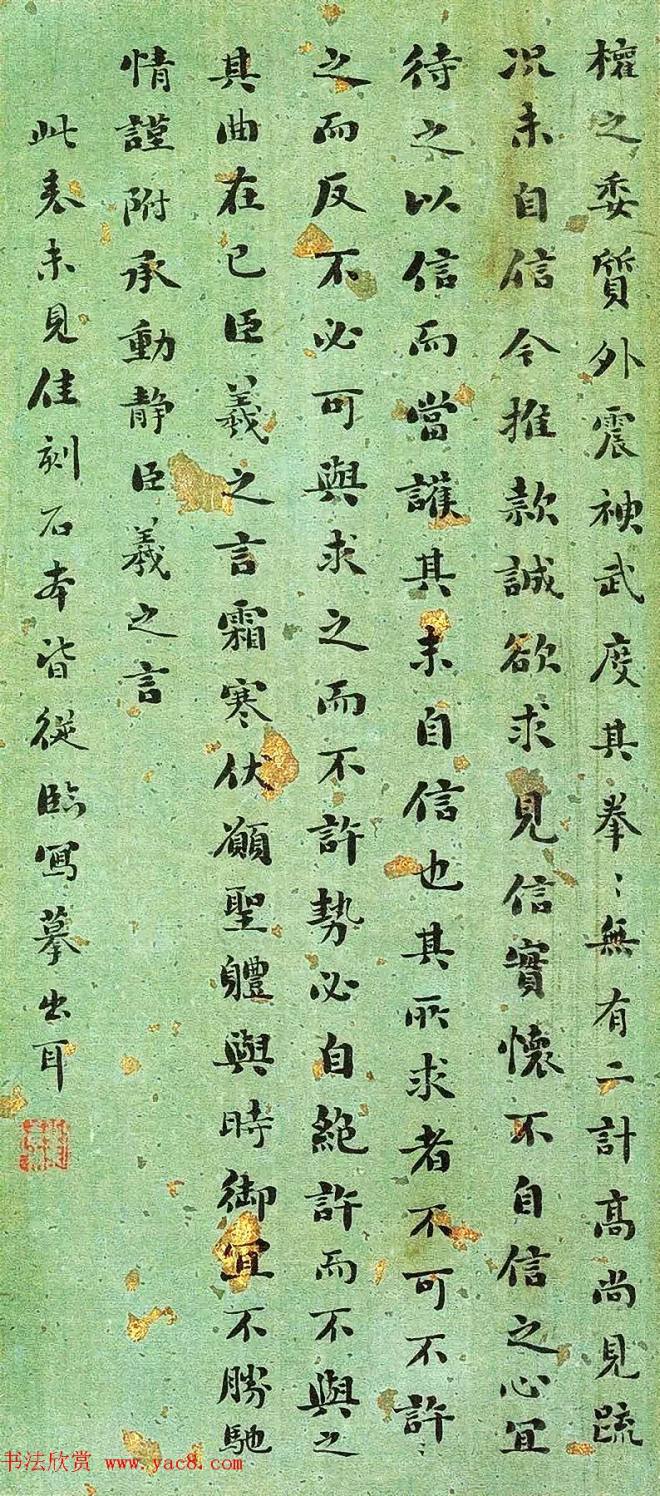 權之委質外震神武度其拳〻無有二計高尚見疏
况未自信今推款誠欲求見信實懷不自信之心宜
待之以信而當護其未自信也其所求者不可不許〻
之而反不必可與求之而不許勢必自絕許而不與之
其曲在已臣羲之言霜寒伏願聖體與時御宜不勝馳
情謹附承動静臣羲之言
此表未見佳刻石本皆從臨寫摹出耳
书法欣赏 www.yac8.com